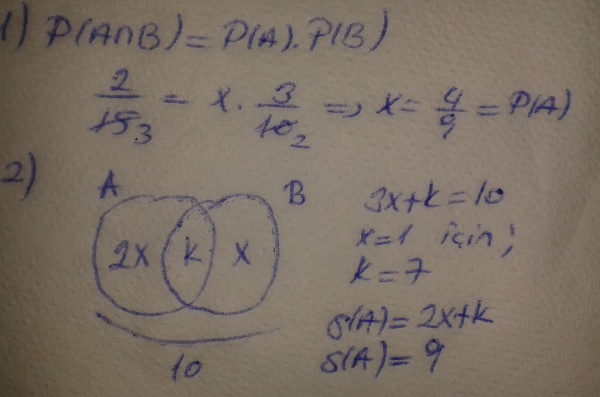 1) P(A∩B) = P(A). P(B)
2/15 3 = x . 3/10 2 => x = 4/9 = P(A)
2)
A B
2x k x
10
3x+k=10
x=1 için;
k=7
s(A)=2x+k
s(A)=9